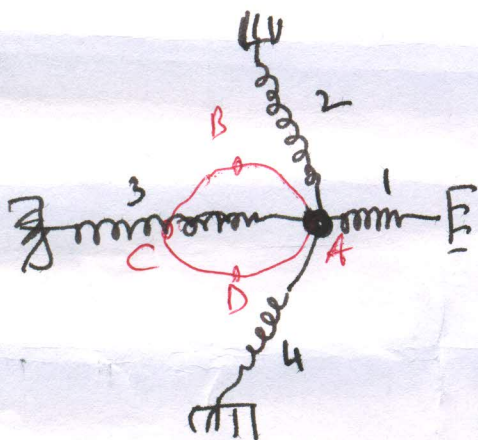 2
B
3
1
C
A
D
4